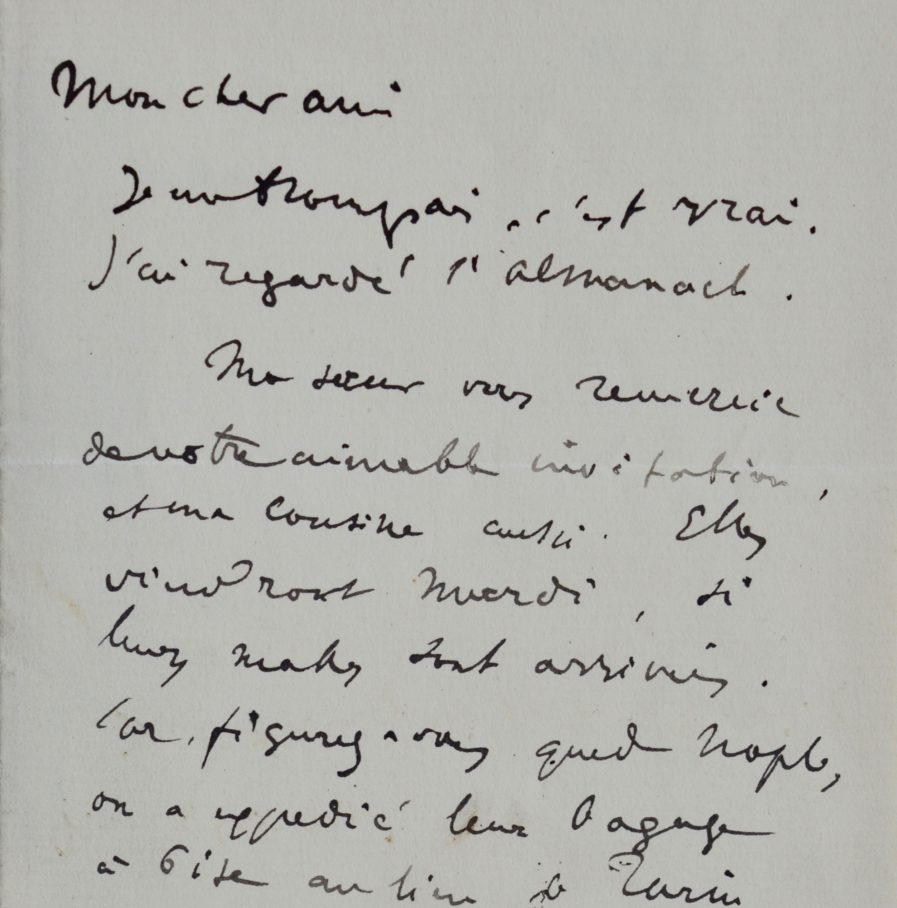 Mon cher ami
Je me trompais, c'est vrai.
J'ai regardé l'almanach.
Ma sœur vous remercie
de votre aimable invitation,
et ma cousine aussi. Elles
viendront mardi, si
leurs malles sont arrivées.
Car, figurez-vous que de Naples,
on a expédié leur bagage
à Pise au lieu de Turin